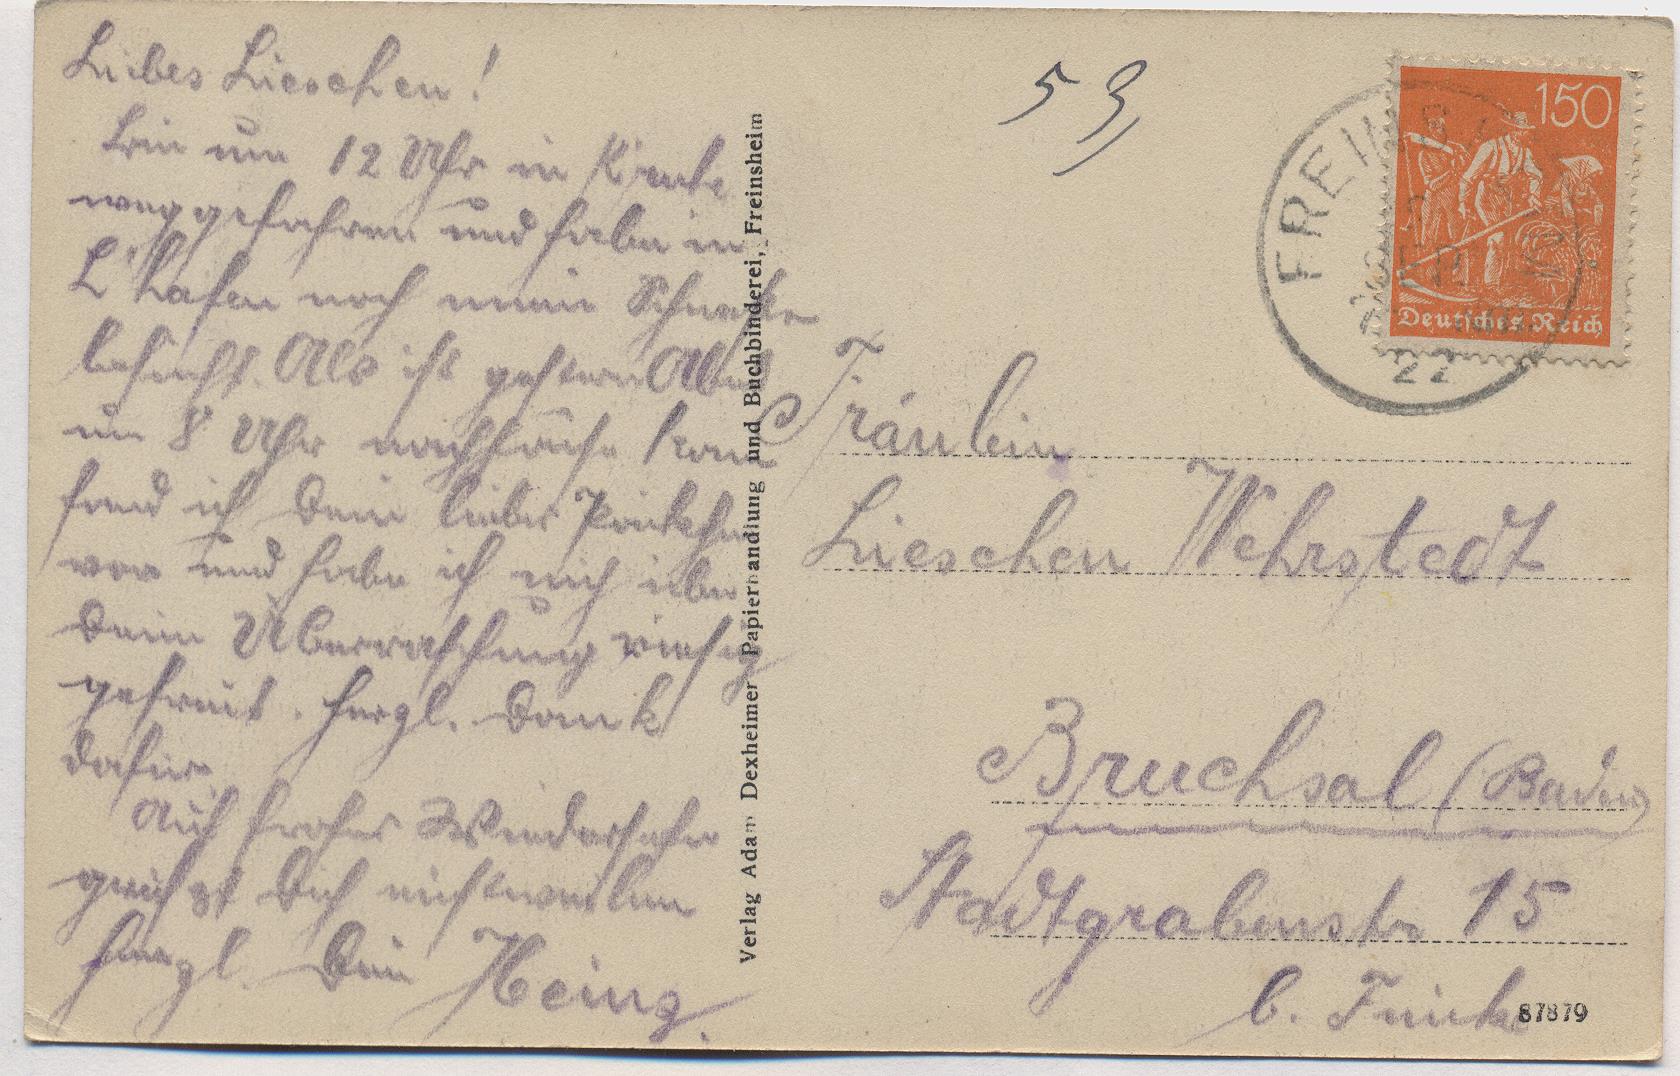 Liebes Lieschen!
Bin um 12 Uhr in
weggefahren und habe in
L'hafen noch meine
besucht. Als ich gestern Abend
um 8 Uhr nachhause kam
fand ich Dein liebes
vor und habe ich mich über
Deine Überraschung riesig
gefreut. Herzl. Dank
dafür
Auf frohes Wiedersehen
grüßt Dich einstweilen
herzl. Dein Heinz.
Verlag Adam Dexheimer Papierhandlung und Buchbinderei, Freinsheim
53
150
Deutsches Reich
FREINS
22
Fräulein
Lieschen Wehrstedt
Bruchsal (Baden)
Stadtgrabenstr 15
b. Funke
87879